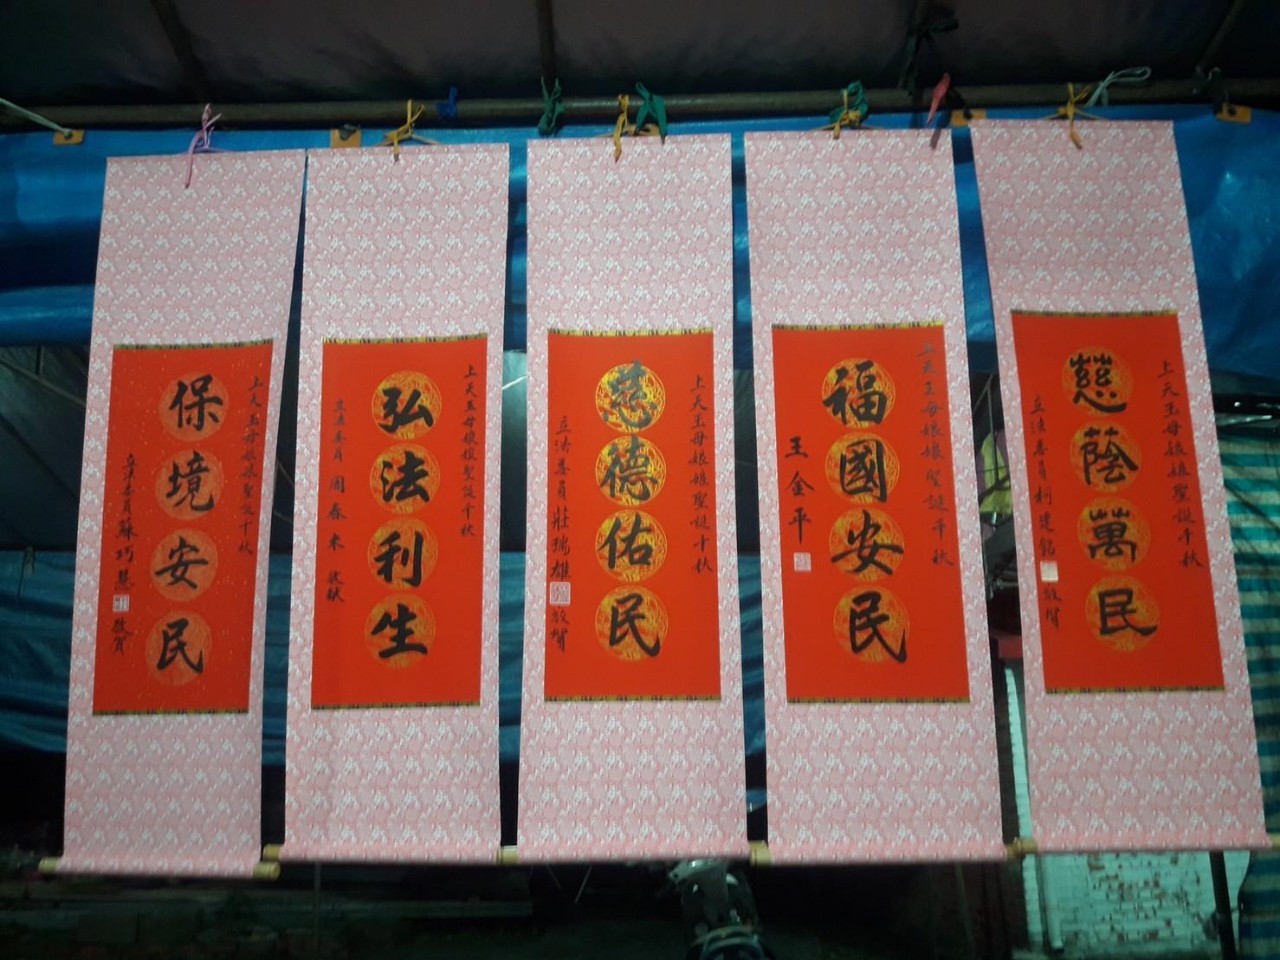 上天玉母娘娘聖誕千秋
慈蔭萬民
立法委員柯建銘
敬賀
上天玉母娘娘聖誕千秋
福國安民
王金平
上天玉母娘娘聖誕千秋
慈德佑民
立法委員莊瑞雄
敬賀
上天玉母娘娘聖誕千秋
弘法利生
立法委員周春米 敬獻
上天玉母娘娘聖誕千秋
保境安民
立法委員蘇巧慧
敬賀